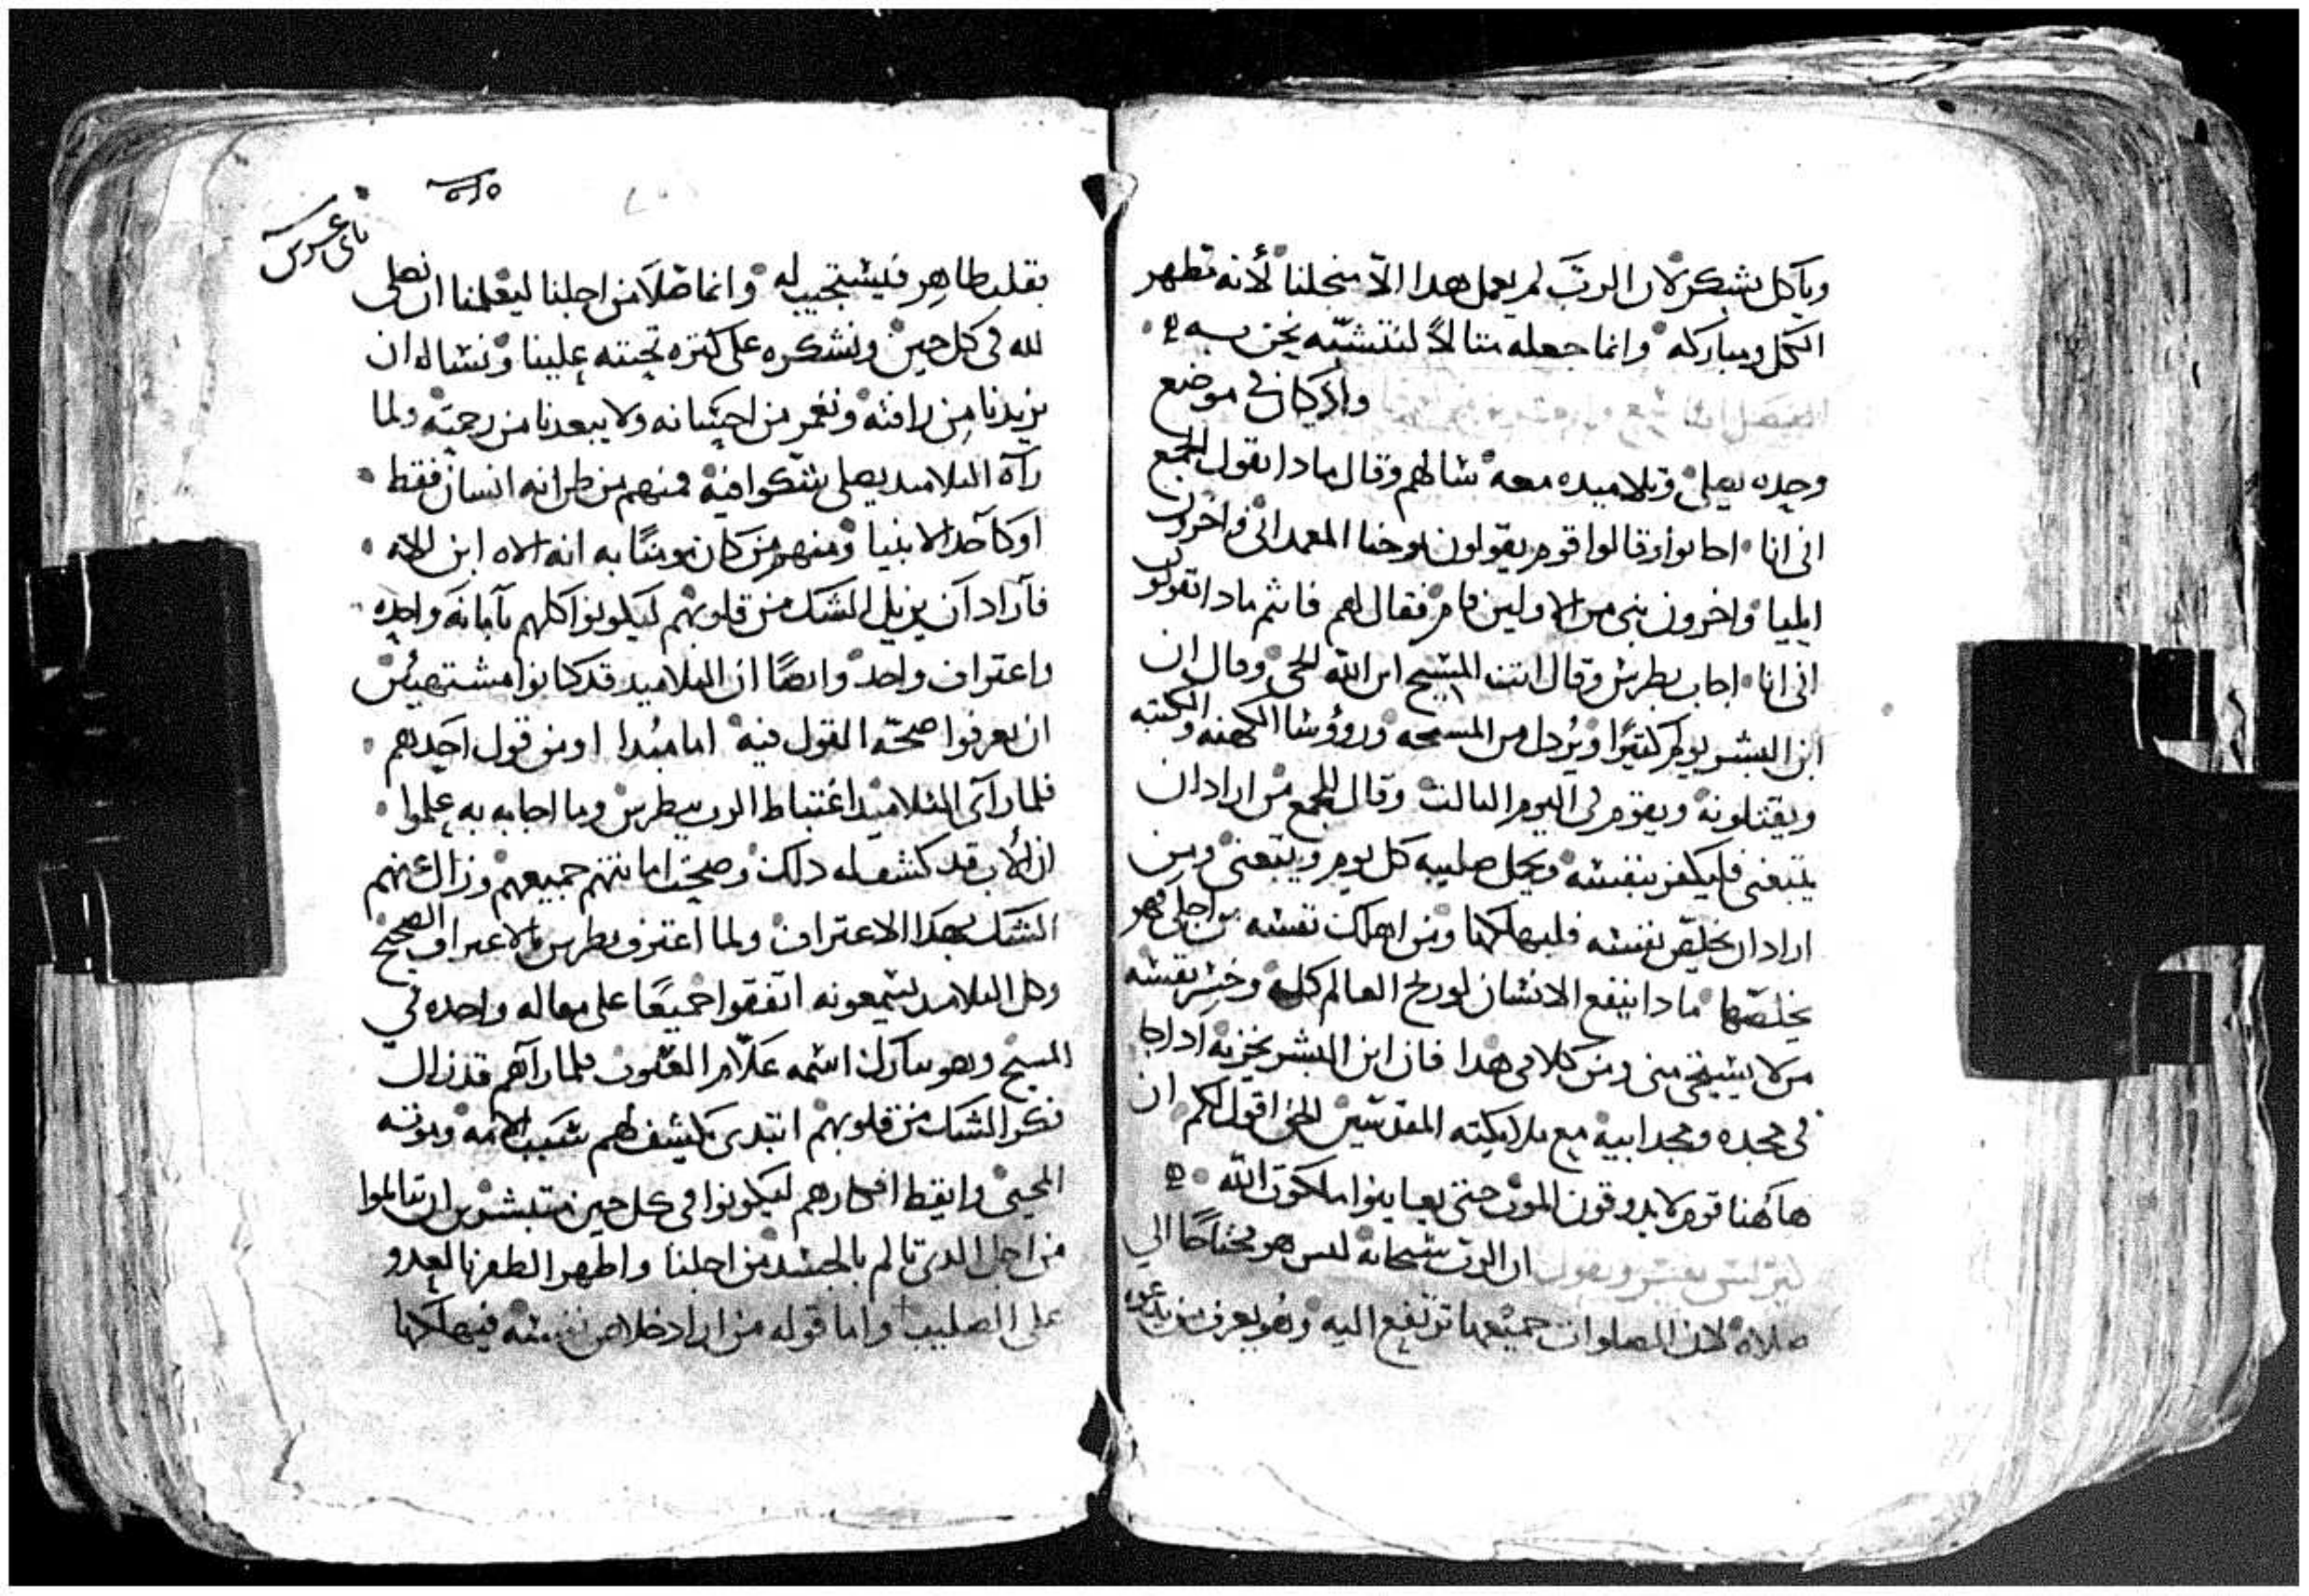 وياكل بشكر لان الرب لم يعمل هدا الا منجلنا لأنه مطهر
الكل ومباركه وانما جعله متالاً لنتشبّه نحن به
الفصل واذ كان في موضع
وحده يصلي وتلاميده معه سالهم وقال مادا تقول الجمع
اني انا اجابوا وقالوا قوم يقولون يوحنا المعمداني واخرون
ايليا واخرون نبي من الاولين قام فقال لهم فانتم مادا تقولون
اني انا اجاب بطرس وقال انت المسيح ابن الله الحي وقال ان
ابن البشر يولم كتيرًا ويُردل من المسيحه وروؤسا الكهنه والكتبه
ويقتلونه ويقوم في اليوم التالت وقال للجمع من اراد ان
يتبعني فليكفر بنفسه ويحمل صليبه كل يوم ويتبعني ومن
اراد ان يخلص نفسه فليهلكها ومن اهلك نفسه من اجلي فهو
يخلصها مادا ينفع الانسان لو ربح العالم كله وخسر نفسه
من لا يستحي مني ومن كلامي هدا فان ابن البشر يخزيه ادا جا
في مجده ومجد ابيه مع ملايكته المقدسين الحق اقول لكم ان
هاهنا قوم لا يدوقون الموت حتى يعاينوا ملكوت الله
كيرلس يفسر ويقول ان الرب سبحانه ليس هو محتاجًا الي
صلاه لان الصلوات جميعها ترتفع اليه وهو يعرف من يدعوه
بقلب طاهر فيستجيب له وانما صلا من اجلنا ليعلمنا ان نصلي
لله في كل حين ونشكره على كتره تحننه علينا ونساله ان
يزيدنا من رافته ونعم من احسانه ولا يبعدنا من رحمته ولما
رآه التلاميد يصلي شكوا فيه فمنهم من ظن انه انسان فقط
او كآحد الانبيا ومنهم من كان مومنًا به انه الاه ابن الاه
فآراد آن يزيل الشك من قلوبهم ليكونوا كلهم بآمانه واحده
واعتراف واحد وايضًا ان التلاميد قد كانوا مشتهيين
ان يعرفوا صحّة القول فيه اما مبُدا او من قول احدهم
فلما رآى التلاميد اغتباط الرب ببطرس وما اجابه به علموا
ان الأب قد كشف له دلك وصحت امانتهم جميعهم وزال عنهم
الشك بهدا الاعتراف ولما اعترف بطرس بالاعتراف الصحيح
وكل التلاميد يسمعونه اتفقوا جميعًا على مقاله واحده في
المسيح وهو تبارك اسمه علّام الغيوب فلما رآهم قد زال
فكر الشك من قلوبهم ابتدى يكشف لهم سبب الامه وموته
المحيي وايقظ افكارهم ليكونوا في كل حين متبشرين ان يتالموا
من اجل الدي تالم بالجسد من اجلنا واظهر الظفر بالعدو
على الصليب واما قوله من اراد خلاص نفسه فيهلكها